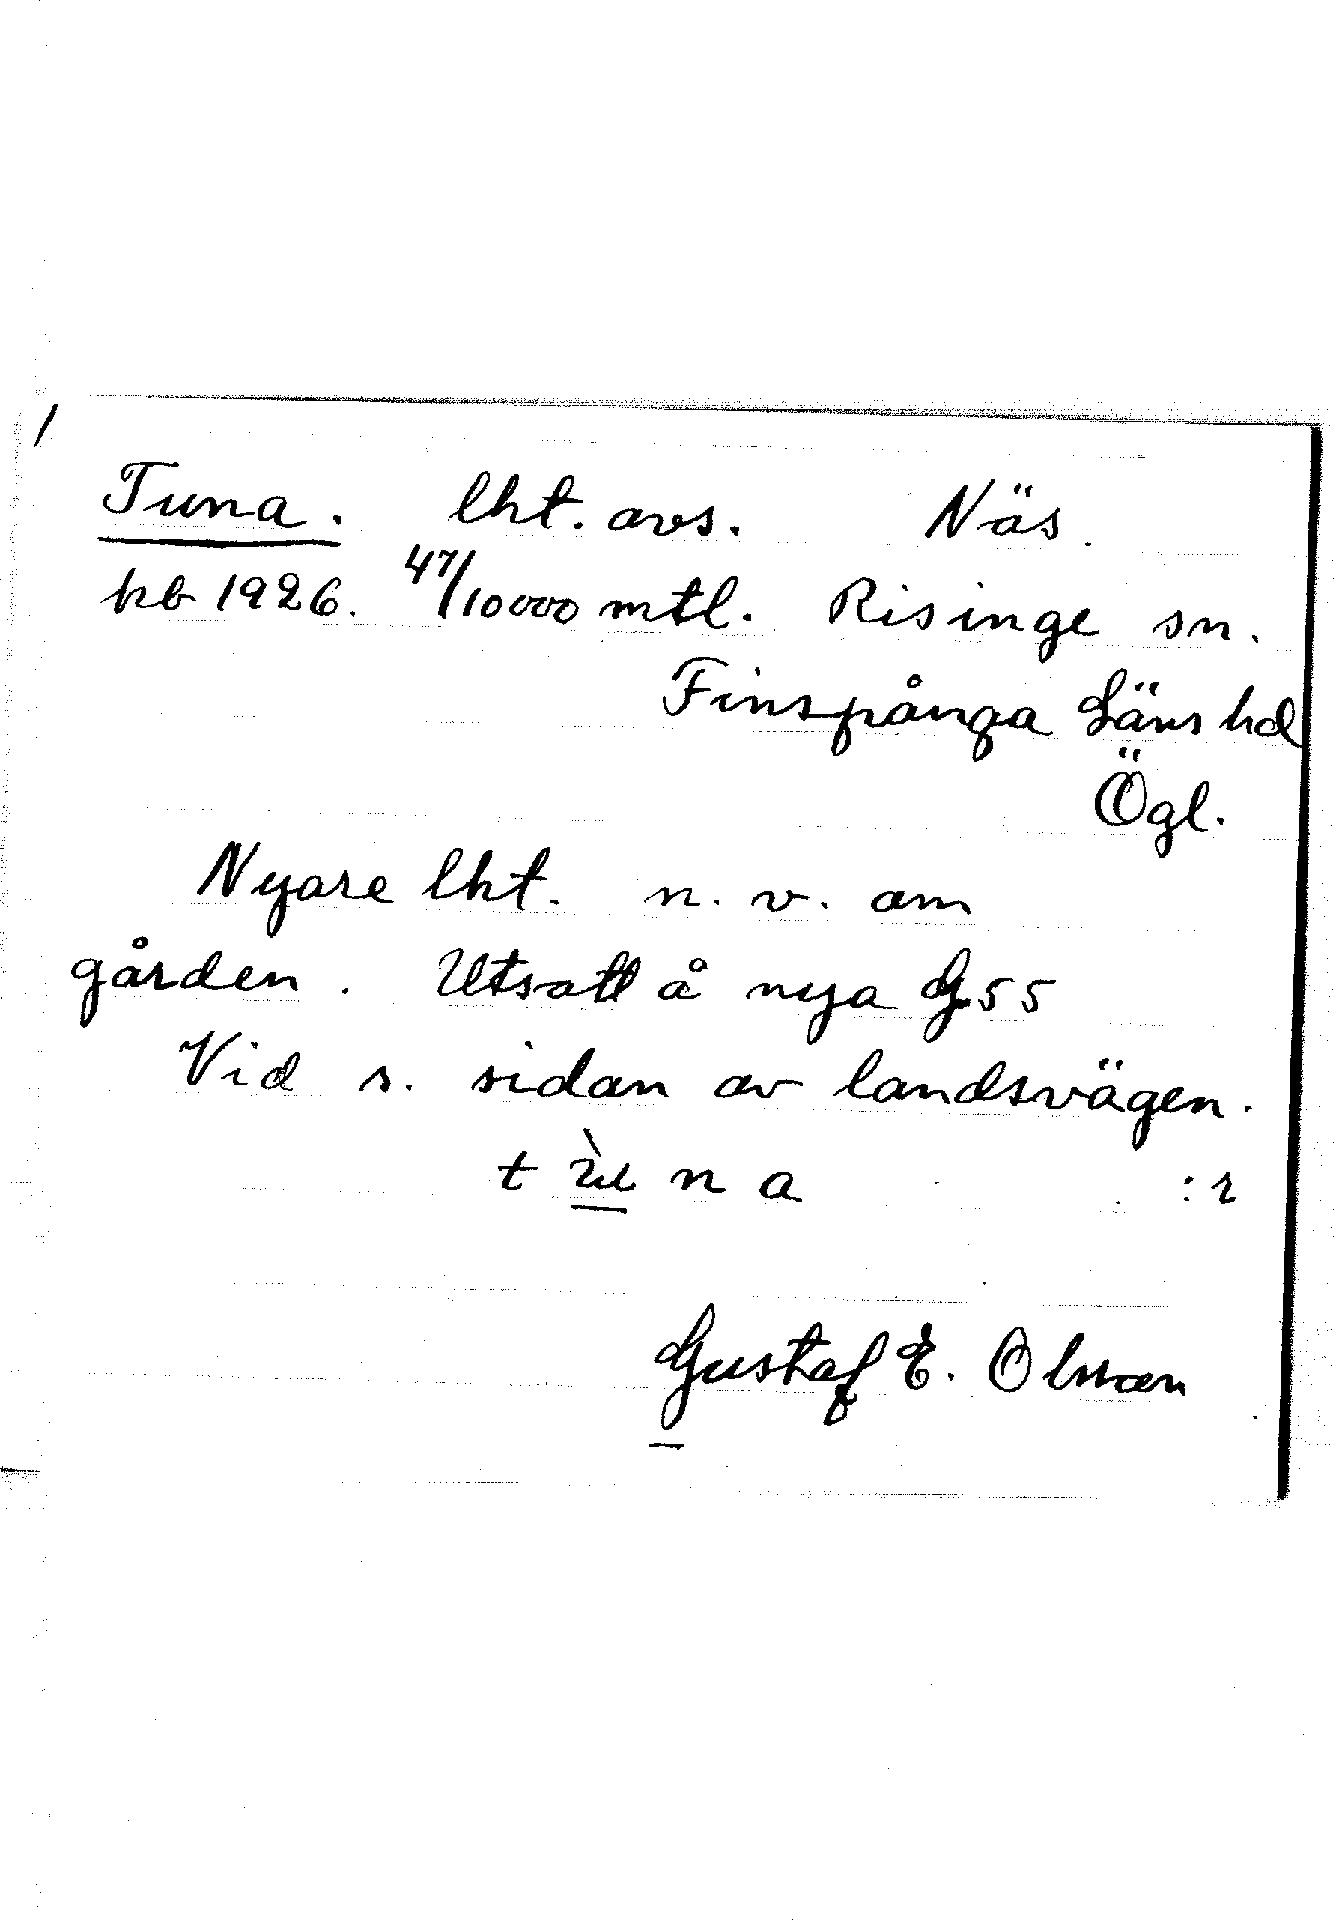 Tuna. lht. avs. Näs.
kb 1926. 47/10000 mtl. Risinge sn.
Finspånga Läns hd
Ögl.
Nyare lht. n. v. om
gården. Utsatt å nya G55
Vid s. sidan av landsvägen.
t ù n a :r
Gustaf E. Olsson